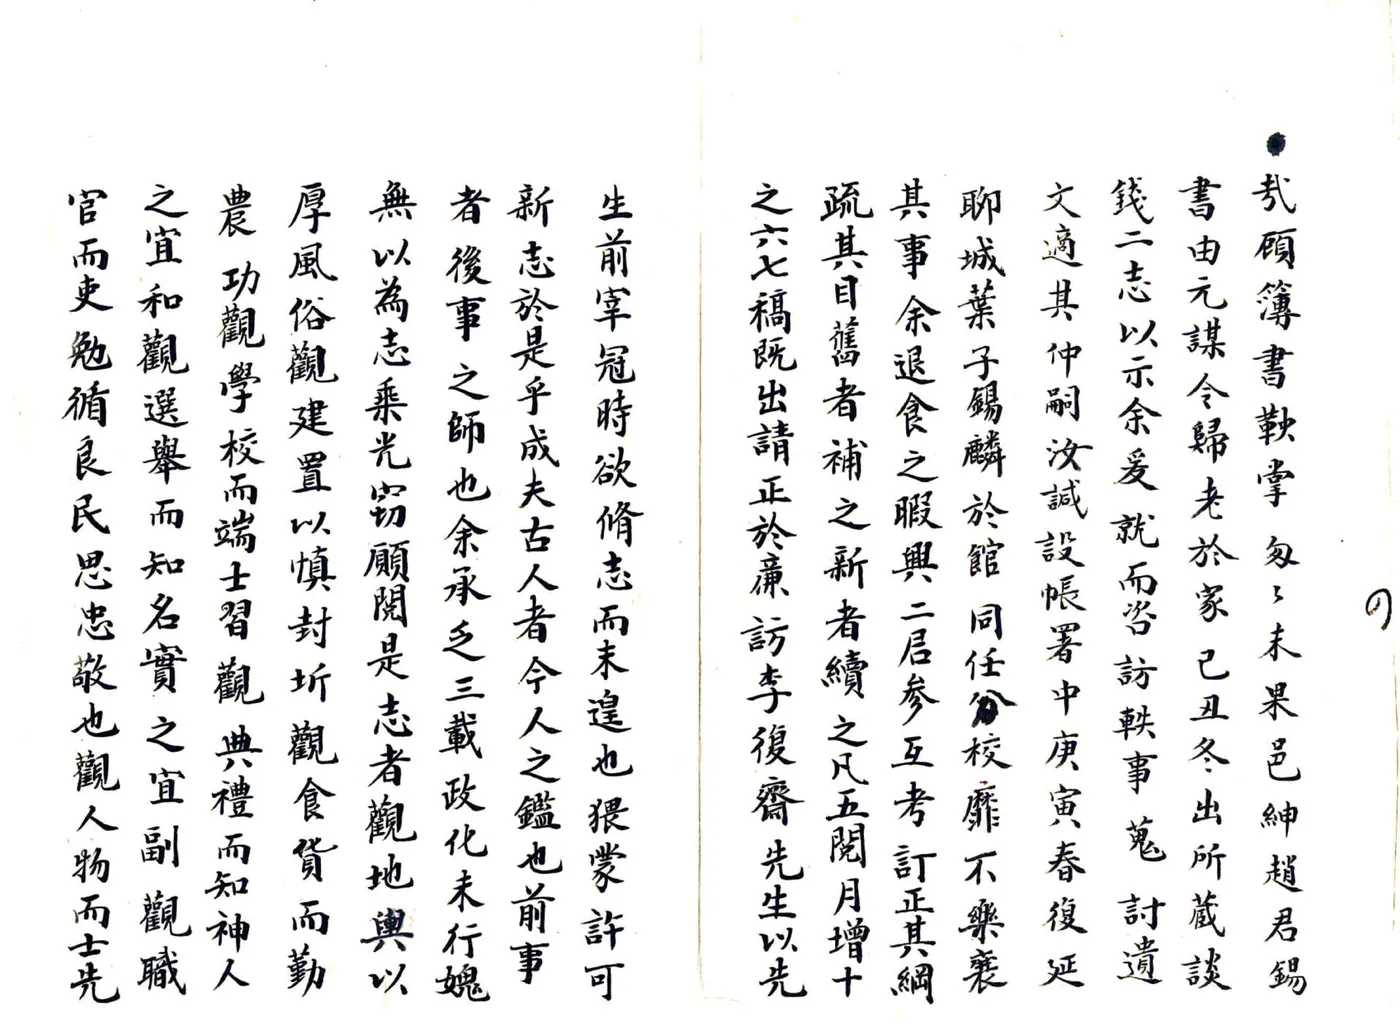 哉顧簿書鞅掌匆〻未果邑紳趙君錫
書由元謀令歸老於家己丑冬出所蔵談
錢二志以示余爰就而咨訪軼事蒐討遺
文適其仲嗣汝諴設帳署中庚寅春復延
聊城葉子錫麟於館同任分校靡不樂襄
其事余退食之暇與二君參互考訂正其綱
疏其目舊者補之新者續之凡五閱月增十
之六七稿既出請正於亷訪李復齋先生以先
生前宰冠時欲脩志而未遑也猥蒙許可
新志於是乎成夫古人者今人之鑑也前事
者後事之師也余承乏三載政化未行媿
無以為志乘光窃願閱是志者觀地輿以
厚風俗觀建置以慎封圻觀食貨而勤
農功觀學校而端士習觀典禮而知神人
之宜和觀選舉而知名實之宜副觀職
官而吏勉循良民思忠敬也觀人物而士先